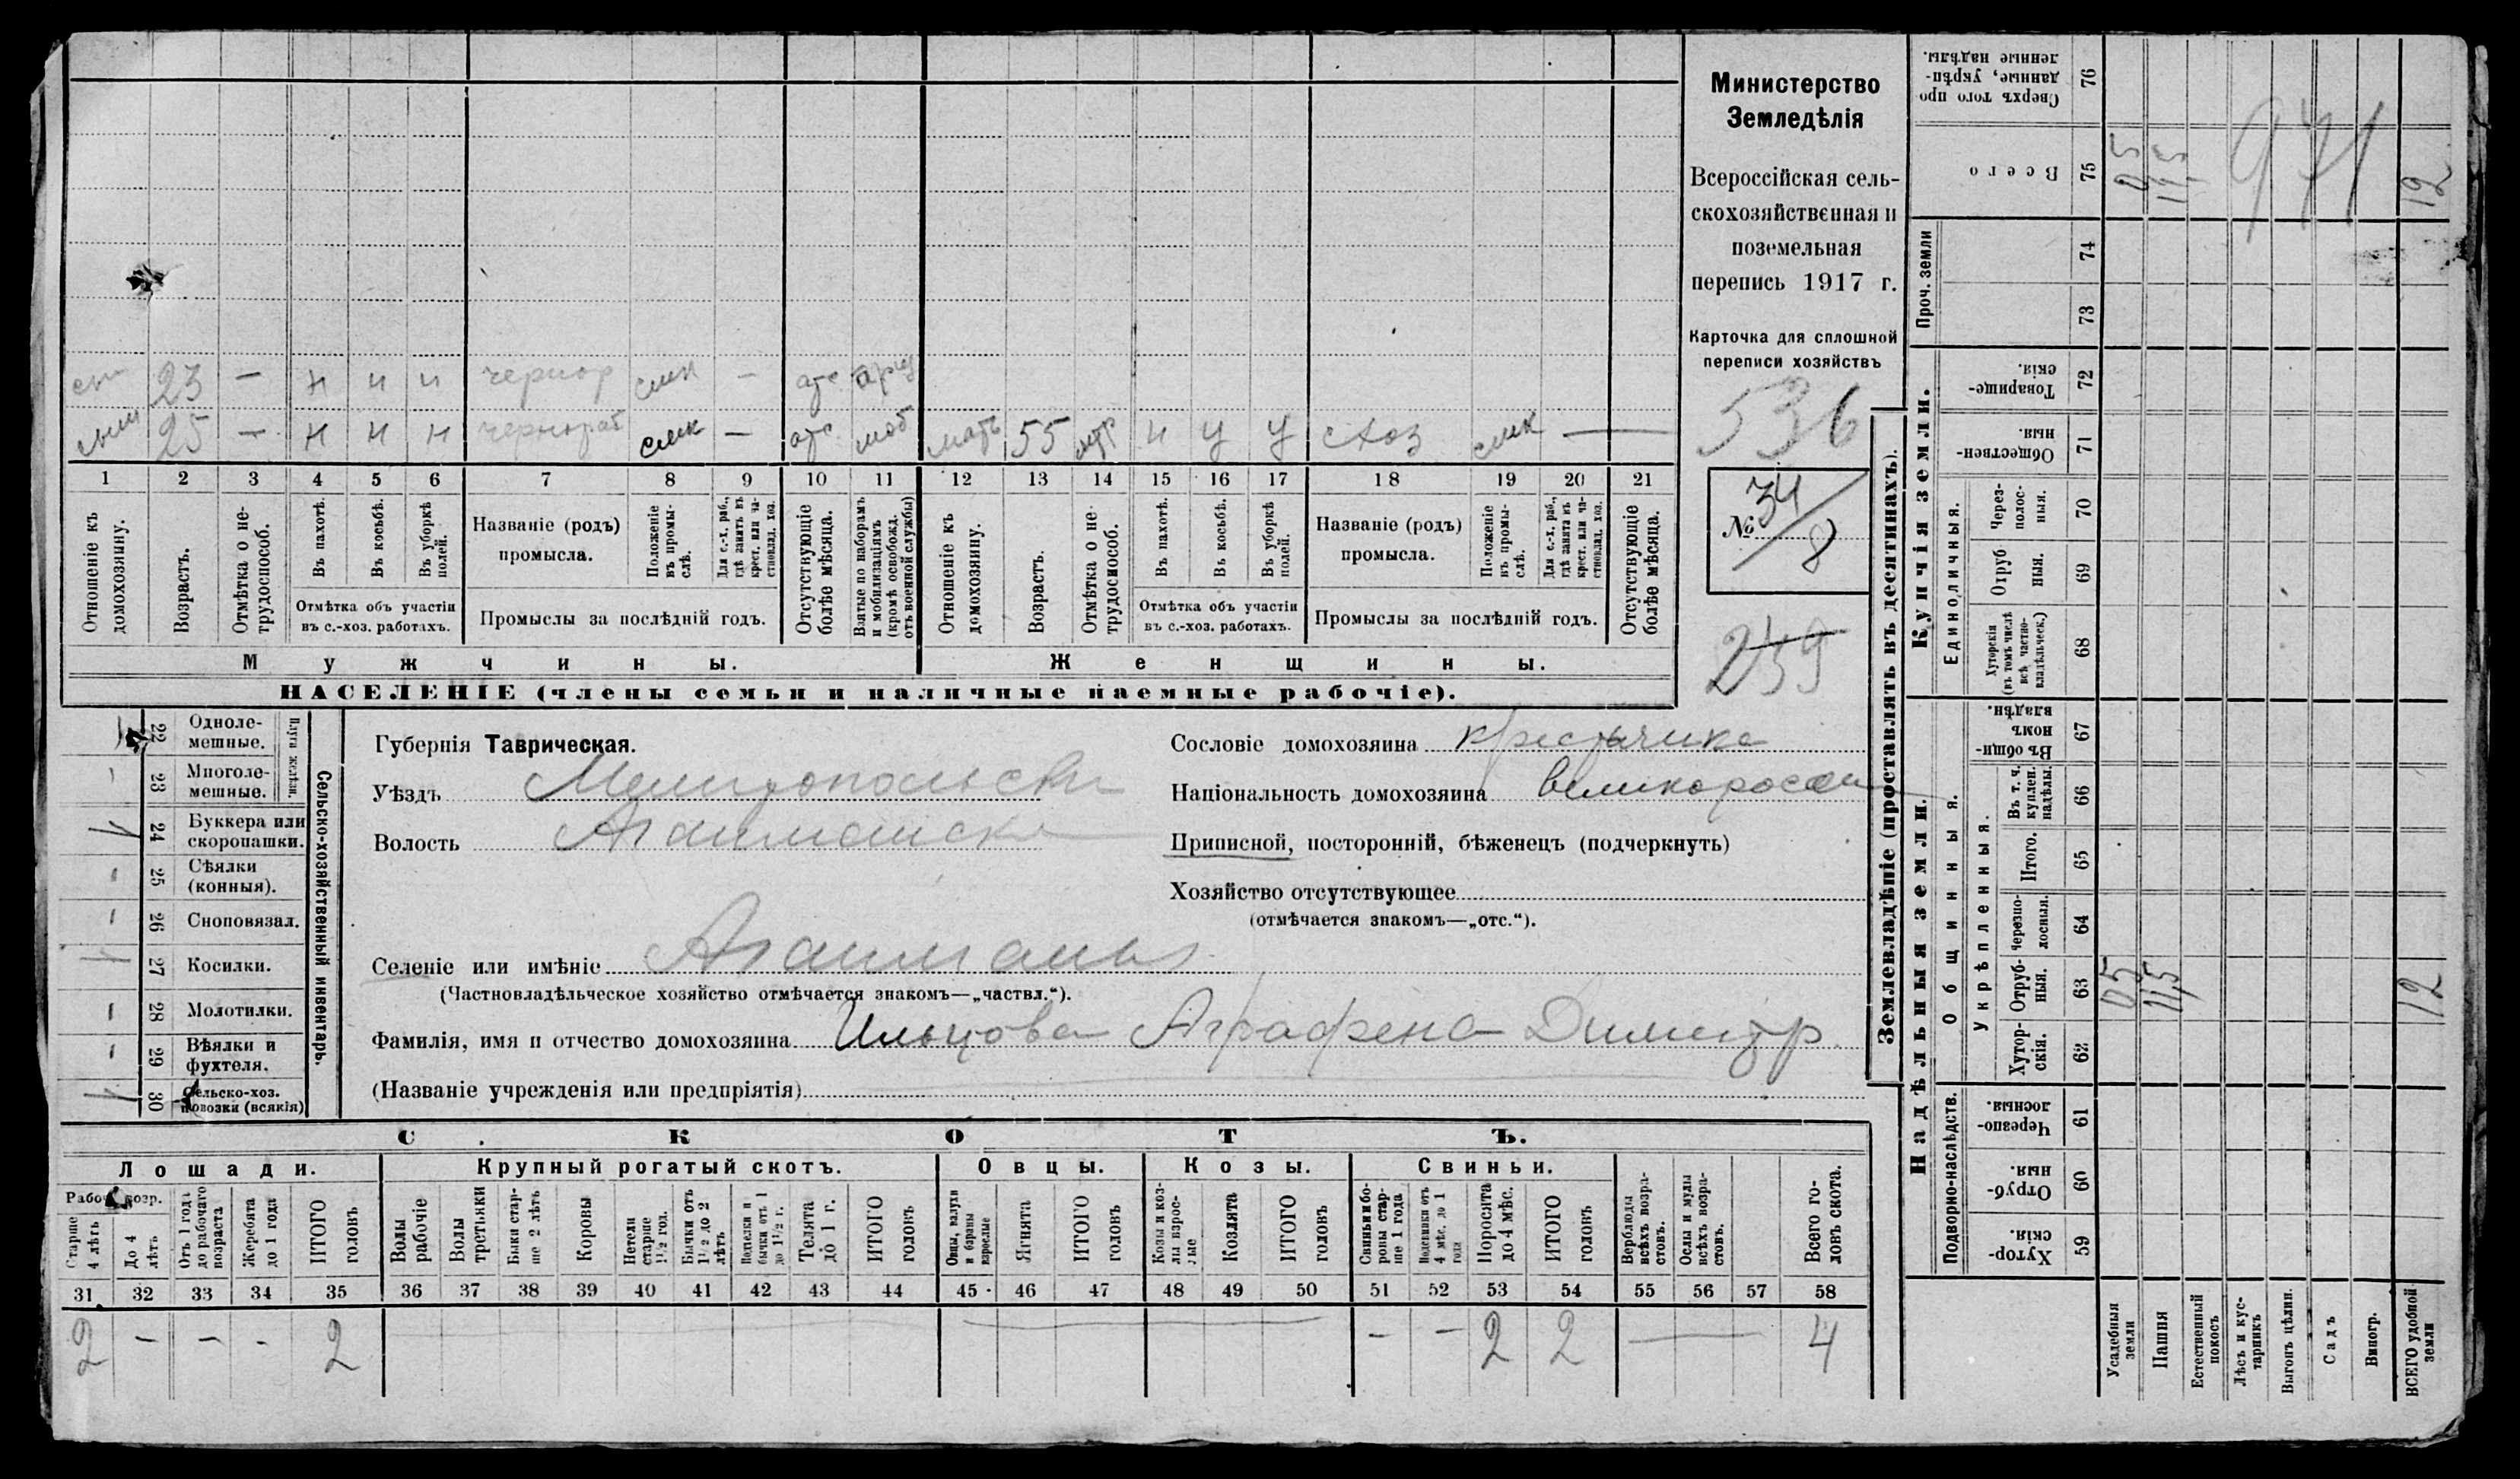 Министерство
Земледѣлія
Всероссійская сель-
скохозяйственная и
поземельная
перепись 1917 г.
Карточка для сплошной
переписи хозяйствъ
536
№ 34/8
239
23 — н н н чернор — отс
25 — н н н чернораб слж — отс моб мать 55 н у у схоз —
1 2 3 4 5 6 7 8 9 10 11 12 13 14 15 16 17 18 19 20 21
Отношеніе къ домохозяину.
Возрастъ.
Отмѣтка о не-трудоспособ.
Въ пахотѣ.
Въ косьбѣ.
Въ уборкѣ полей.
Отмѣтка объ участіи
въ с.-хоз. работахъ.
Названіе (родъ)
промысла.
Положеніе въ промы-слѣ.
Для с.-х. раб., гдѣ занятъ въ крест. или ча-стновлад. хоз.
Промыслы за послѣдній годъ.
Отсутствующіе болѣе мѣсяца.
Взятые по наборамъ и мобилизаціямъ (кромѣ освобожд. отъ военной службы)
Отношеніе къ домохозяину.
Возрастъ.
Отмѣтка о не-трудоспособ.
Въ пахотѣ.
Въ косьбѣ.
Въ уборкѣ полей.
Отмѣтка объ участіи
въ с.-хоз. работахъ.
Названіе (родъ)
промысла.
Положеніе въ промы-слѣ.
Для с.-х. раб., гдѣ занята въ крест. или ча-стновлад. хоз.
Промыслы за послѣдній годъ.
Отсутствующіе болѣе мѣсяца.
Мужчины. Женщины.
НАСЕЛЕНІЕ (члены семьи и наличные наемные рабочіе).
Сельско-хозяйственный инвентарь.
Плуги желѣзн.
22 Одноле-мешные.
23 Многоле-мешные.
24 Буккера или скоропашки.
25 Сѣялки (конныя).
26 Сноповязал.
27 Косилки.
28 Молотилки.
29 Вѣялки и фухтеля.
30 Сельско-хоз. повозки (всякія)
Губернія Таврическая.
Уѣздъ Мелитопольскій
Волость Агайманская
Селеніе или имѣніе Агайманы
(Частновладѣльческое хозяйство отмѣчается знакомъ—„частвл.“).
Фамилія, имя и отчество домохозяина Ильцова Аграфена Димитр.
(Названіе учрежденія или предпріятія)
Сословіе домохозяина
Національность домохозяина великоросс
Приписной, посторонній, бѣженецъ (подчеркнуть)
Хозяйство отсутствующее
(отмѣчается знакомъ—„отс.“).
СКОТЪ.
Лошади. Крупный рогатый скотъ. Овцы. Козы. Свиньи.
Рабоч. возр.
Старше 4 лѣтъ
До 4 лѣтъ
Отъ 1 года до рабочаго возраста
Жеребята до 1 года
ИТОГО головъ
Волы рабочіе
Волы третьяки
Быки стар-ше 2 лѣтъ
Коровы
Нетели старше 1½ год.
Бычки отъ 1½ до 2 лѣтъ
Подтелки и бычки отъ 1 до 1½ г.
Телята до 1 г.
ИТОГО головъ
Овцы, валухи и бараны взрослые
Ягнята
ИТОГО головъ
Козы и коз-лы взрос-лые
Козлята
ИТОГО головъ
Свиньи и бо-ровы стар-ше 1 года
Подсвинки отъ 4 мѣс. до 1 года
Поросята до 4 мѣс.
ИТОГО головъ
Верблюды всѣхъ возра-стовъ.
Ослы и мулы всѣхъ возра-стовъ.
Всего го-ловъ скота.
31 32 33 34 35 36 37 38 39 40 41 42 43 44 45 46 47 48 49 50 51 52 53 54 55 56 57 58
2 — — - 2 — — - — 2 2 — 4
Землевладѣніе (проставлять въ десятинахъ).
Надѣльныя земли.
Купчія земли.
Проч. земли
Подворно-наслѣдств.
Общинныя.
Укрѣпленныя.
Единоличныя.
Сверхъ того про данные, укрѣп-ленные надѣлы. 76
Всего 75 0,5 11,5 12
971
74
73
Товарище-скія. 72
Обществен-ныя. 71
Через-полос-ныя. 70
Отруб ныя. 69
Хуторскія (въ томъ числѣ всѣ частно-владѣльческ.) 68
Въ общи-номъ владѣн. 67
Въ т. ч. куплен. надѣлы. 66
Итого. 65
Черезпо-лосныя. 64
Отруб-ныя. 63 0,5 11,5 12
Хутор-скія. 62
Черезпо-лосныя. 61
Отруб-ныя. 60
Хутор-скія. 59
Усадебныя земли
Пашня
Естественный покосъ
Лѣсъ и кус-тарникъ
Выгонъ цѣлин.
Садъ
Виногр.
ВСЕГО удобной земли